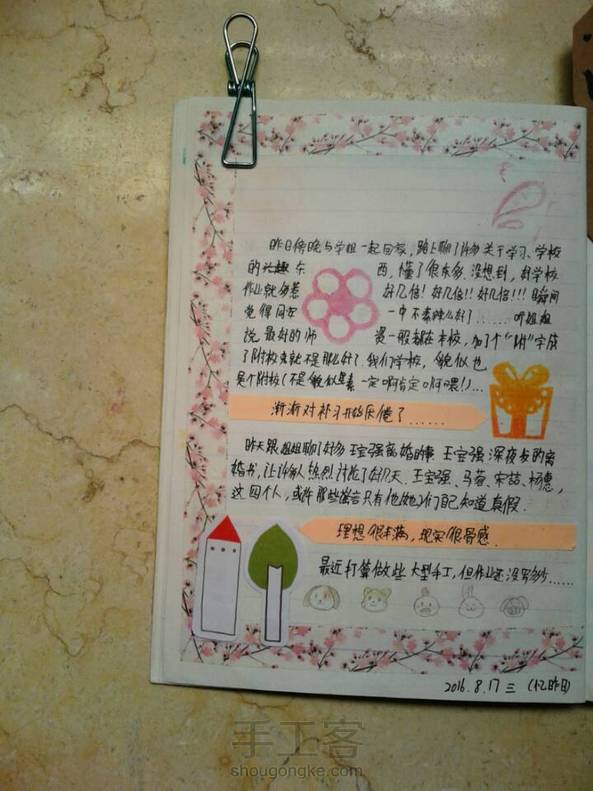 昨日傍晚与学姐一起回家,路上聊了许多关于学习、学校
的兴趣东西,懂了很东多,没想到,好学校
作业就多惹 好几倍!好几倍!!好几倍!!!瞬间
觉得同安一中不素辣么好了……听姐姐
说最好的师资一般都在本校,加了个“附”字成
了附校其就不是那么好了.我们学校,貌似也
是个附校(不是貌似是素一定啊肯定啊喂!)…
渐渐对补习开始厌倦了……
昨天跟姐姐聊了好多王宝强离婚的事 王宝强深夜发的离
婚书,让许多人热烈讨论了好几天.王宝强、马蓉、宋喆、杨慧,
这四个人,或许那些谣言只有他(她)们自己知道真假.
理想很丰满,现实很骨感.
最近打算做些大型手工,但作业还没写多少……
2016.8.17 三 (忆昨日)
手工客
shougongke.com